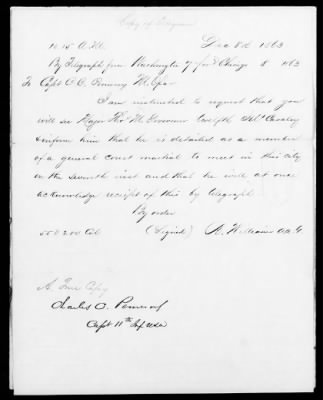 Copy of Telegram
10.15 A.M. Dec 8th 1863
By Telegraph from Washington 7 for Chicago 8 1863
To Capt C. O. Pomeroy M. Ofcr
I am instructed to request that you
will see Major Hr. M. Twelfth Ills Cavalry
& inform him that he is detailed as a member
of a general court martial to meet in this city
on the seventh inst and that he will at once
acknowledge receipt of this by telegraph
By order
(Signed) A. Williams A A G
A True Copy
Charles O. Pomeroy
Capt 11th Inf USA